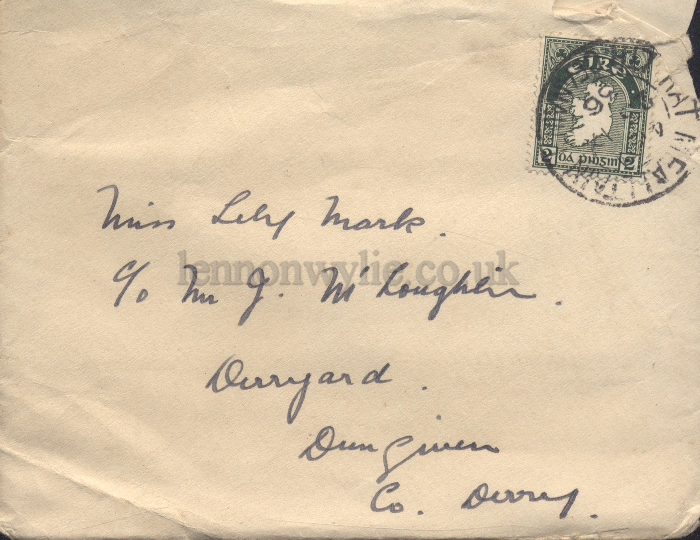 EIRE
2 2
Miss Lily Mark.
lennonwylie.co.uk
c/o Mr J. McLoughlin.
Derryard.
Dungiven
Co. Derry.